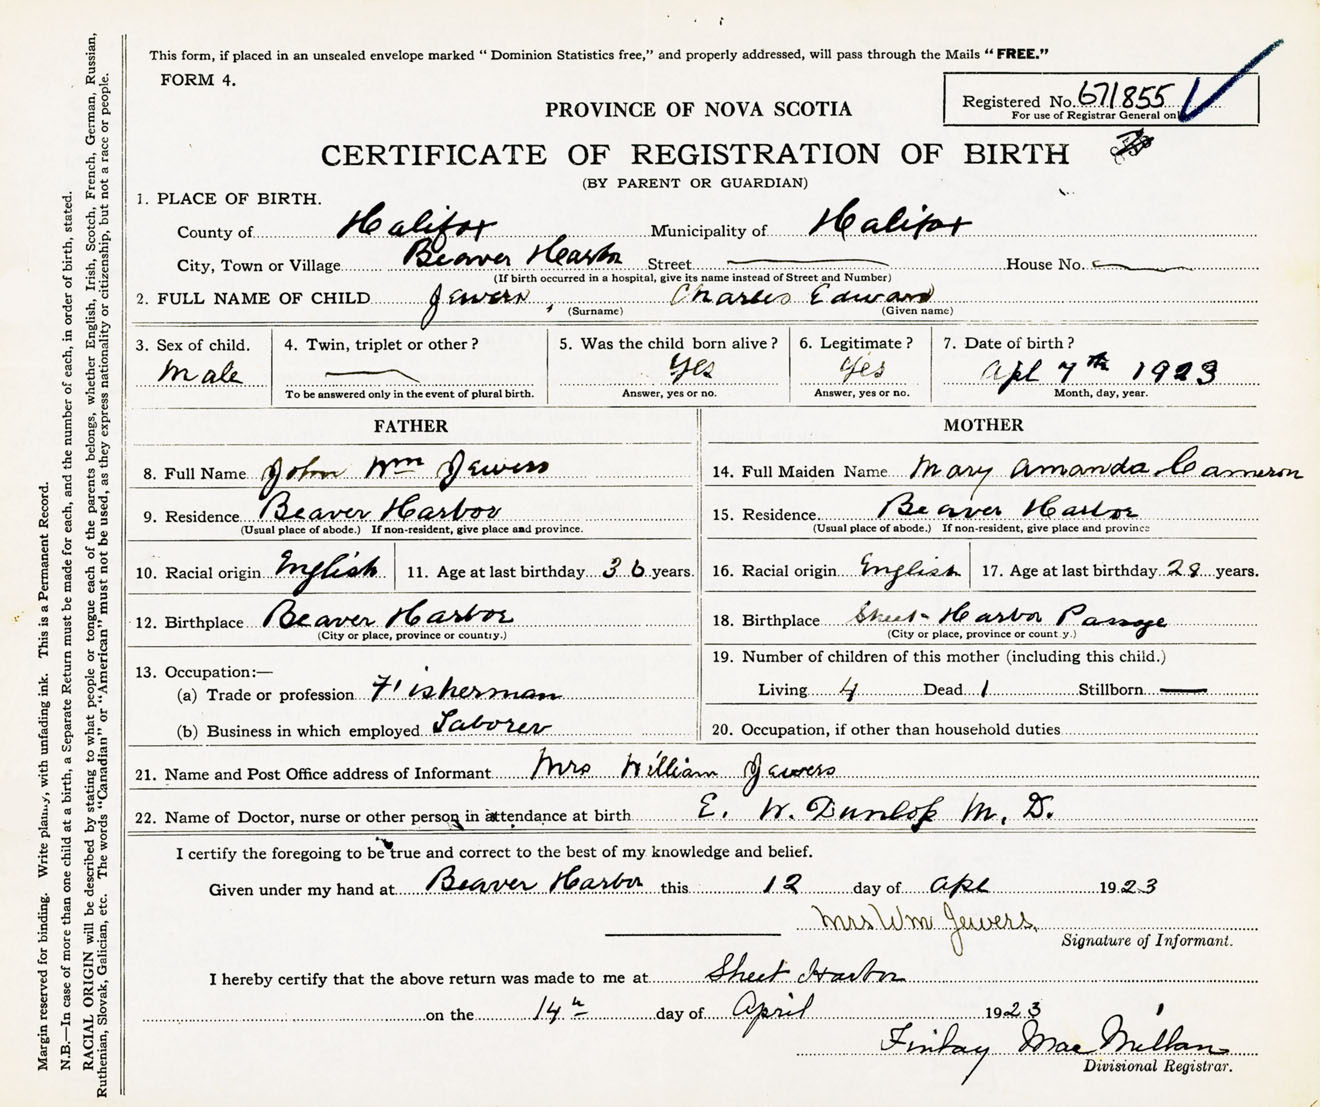 This form, if placed in an unsealed envelope marked " Dominion Statistics free," and properly addressed, will pass through the Mails " FREE."
FORM 4.
Registered No. 671855
For use of Registrar General only
PROVINCE OF NOVA SCOTIA
CERTIFICATE OF REGISTRATION OF BIRTH
(BY PARENT OR GUARDIAN)
1. PLACE OF BIRTH.
County of Halifax Municipality of Halifax
City, Town or Village Beaver Harbor Street House No.
(If birth occurred in a hospital, give its name instead of Street and Number)
2. FULL NAME OF CHILD Jewers, Charles Edward
(Surname) (Given name)
3. Sex of child. 4. Twin, triplet or other? 5. Was the child born alive? 6. Legitimate? 7. Date of birth?
Male Yes Yes Apl 7th 1923
To be answered only in the event of plural birth. Answer, yes or no. Answer, yes or no. Month, day, year.
FATHER MOTHER
8. Full Name John Wm Jewers 14. Full Maiden Name Mary Amanda Cameron
9. Residence Beaver Harbor 15. Residence Beaver Harbor
(Usual place of abode.) If non-resident, give place and province. (Usual place of abode.) If non-resident, give place and province
10. Racial origin English 11. Age at last birthday 36 years. 16. Racial origin English 17. Age at last birthday 28 years.
12. Birthplace Beaver Harbor 18. Birthplace Sheet Harbor Passage
(City or place, province or country.) (City or place, province or count y.)
13. Occupation:— 19. Number of children of this mother (including this child.)
(a) Trade or profession Fisherman Living 4 Dead 1 Stillborn
(b) Business in which employed Laborer 20. Occupation, if other than household duties
21. Name and Post Office address of Informant Mrs William Jewers
22. Name of Doctor, nurse or other person in attendance at birth E. W. Dunlop M. D.
I certify the foregoing to be true and correct to the best of my knowledge and belief.
Given under my hand at Beaver Harbor this 12 day of Apl 1923
Mrs Wm Jewers.
Signature of Informant.
I hereby certify that the above return was made to me at Sheet Harbor
on the 14th day of April 1923
Finlay MacMillan
Divisional Registrar.
Margin reserved for binding. Write plainly, with unfading ink. This is a Permanent Record.
N.B.—In case of more than one child at a birth, a Separate Return must be made for each, and the number of each, in order of birth, stated.
RACIAL ORIGIN will be described by stating to what people or tongue each of the parents belongs, whether English, Irish, Scotch, French, German, Russian,
Ruthenian, Slovak, Galician, etc. The words "Canadian" or "American" must not be used, as they express nationality or citizenship, but not a race or people.